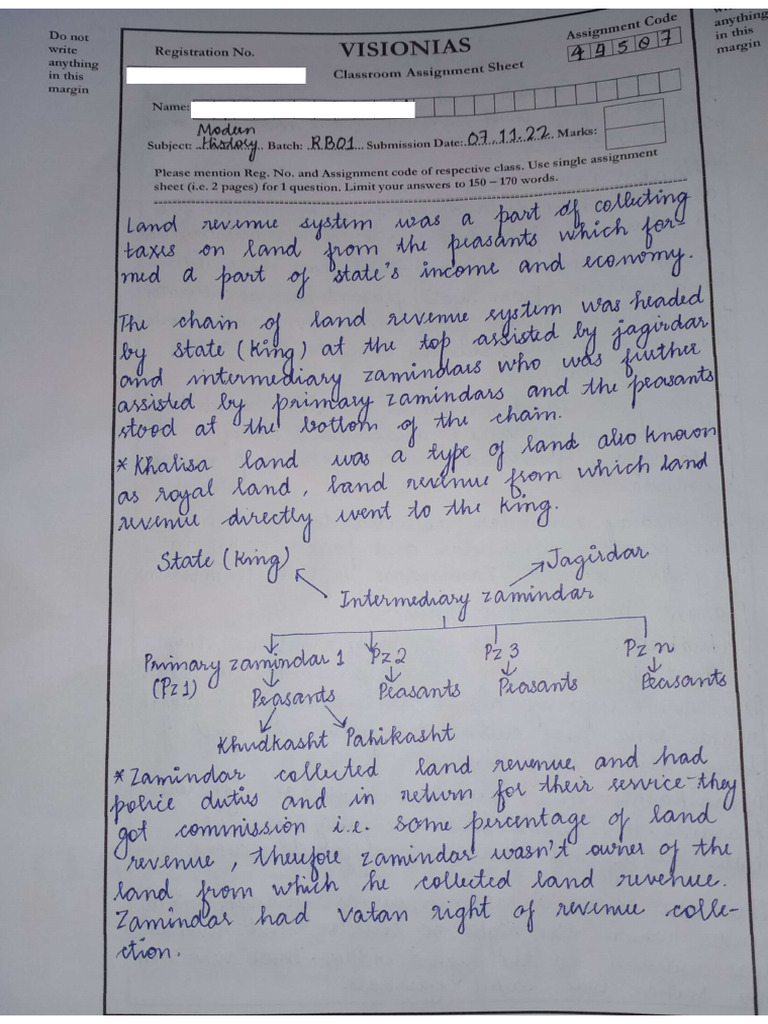 Do not
write
anything
in this
margin
Registration No.
VISIONIAS
Classroom Assignment Sheet
Assignment Code
49507
anything
in this
margin
Name:
Subject: Modern History Batch: RB01 Submission Date: 07.11.22 Marks:
Please mention Reg. No. and Assignment code of respective class. Use single assignment
sheet (i.e. 2 pages) for 1 question. Limit your answers to 150 – 170 words.
Land revenue system was a part of collecting
taxes on land from the peasants which for-
med a part of state's income and economy.
The chain of land revenue system was headed
by state (King) at the top assisted by jagirdar
and intermediary zamindars who was further
assisted by primary zamindars and the peasants
stood at the bottom of the chain.
* Khalisa land was a type of land also known
as royal land, land revenue from which land
revenue directly went to the King.
State (King)
Jagirdar
Intermediary zamindar
Primary zamindar 1 Pz 2 Pz 3 Pz n
(Pz 1) Peasants Peasants Peasants Peasants
Khudkasht Pahikasht
* Zamindar collected land revenue, and had
police duties and in return for their service-they
got commission i.e. some percentage of land
revenue, therefore zamindar wasn't owner of the
land from which he collected land revenue.
Zamindar had vatan right of revenue colle-
ction.